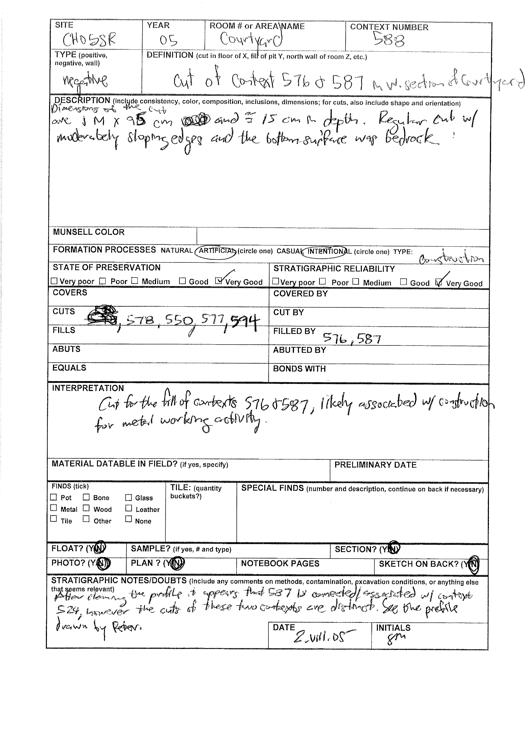 SITE YEAR ROOM # or AREA\NAME CONTEXT NUMBER
CHO5SR 05 Courtyard 588
TYPE (positive, negative, wall) DEFINITION (cut in floor of X, fill of pit Y, north wall of room Z, etc.)
negative Cut of Context 576 & 587 in w. section of Courtyard
DESCRIPTION (include consistency, color, composition, inclusions, dimensions; for cuts, also include shape and orientation)
Dimensions of the cut
are 1 M X 95 cm and ≈ 15 cm in depth. Regular cut w/
moderately sloping edges and the bottom surface was bedrock.
MUNSELL COLOR
FORMATION PROCESSES NATURAL / ARTIFICIAL (circle one) CASUAL / INTENTIONAL (circle one) TYPE: Construction
STATE OF PRESERVATION STRATIGRAPHIC RELIABILITY
☐ Very poor ☐ Poor ☐ Medium ☐ Good ☑ Very Good ☐ Very poor ☐ Poor ☐ Medium ☐ Good ☑ Very Good
COVERS COVERED BY
CUTS , 578, 550, 577, 594 CUT BY
FILLS FILLED BY 576, 587
ABUTS ABUTTED BY
EQUALS BONDS WITH
INTERPRETATION
Cut for the fill of contexts 576 & 587, likely associated w/ construction
for metal working activity.
MATERIAL DATABLE IN FIELD? (if yes, specify) PRELIMINARY DATE
FINDS (tick) TILE: (quantity buckets?) SPECIAL FINDS (number and description, continue on back if necessary)
☐ Pot ☐ Bone ☐ Glass
☐ Metal ☐ Wood ☐ Leather
☐ Tile ☐ Other ☐ None
FLOAT? (Y/N) SAMPLE? (if yes, # and type) SECTION? (Y/N)
PHOTO? (Y/N) PLAN ? (Y/N) NOTEBOOK PAGES SKETCH ON BACK? (Y/N)
STRATIGRAPHIC NOTES/DOUBTS (Include any comments on methods, contamination, excavation conditions, or anything else
that seems relevant)
After cleaning the profile it appears that 587 is connected/associated w/ context
524, however the cuts of these two contexts are distinct. See the profile
drawn by
DATE INITIALS
2.viii.05 gm